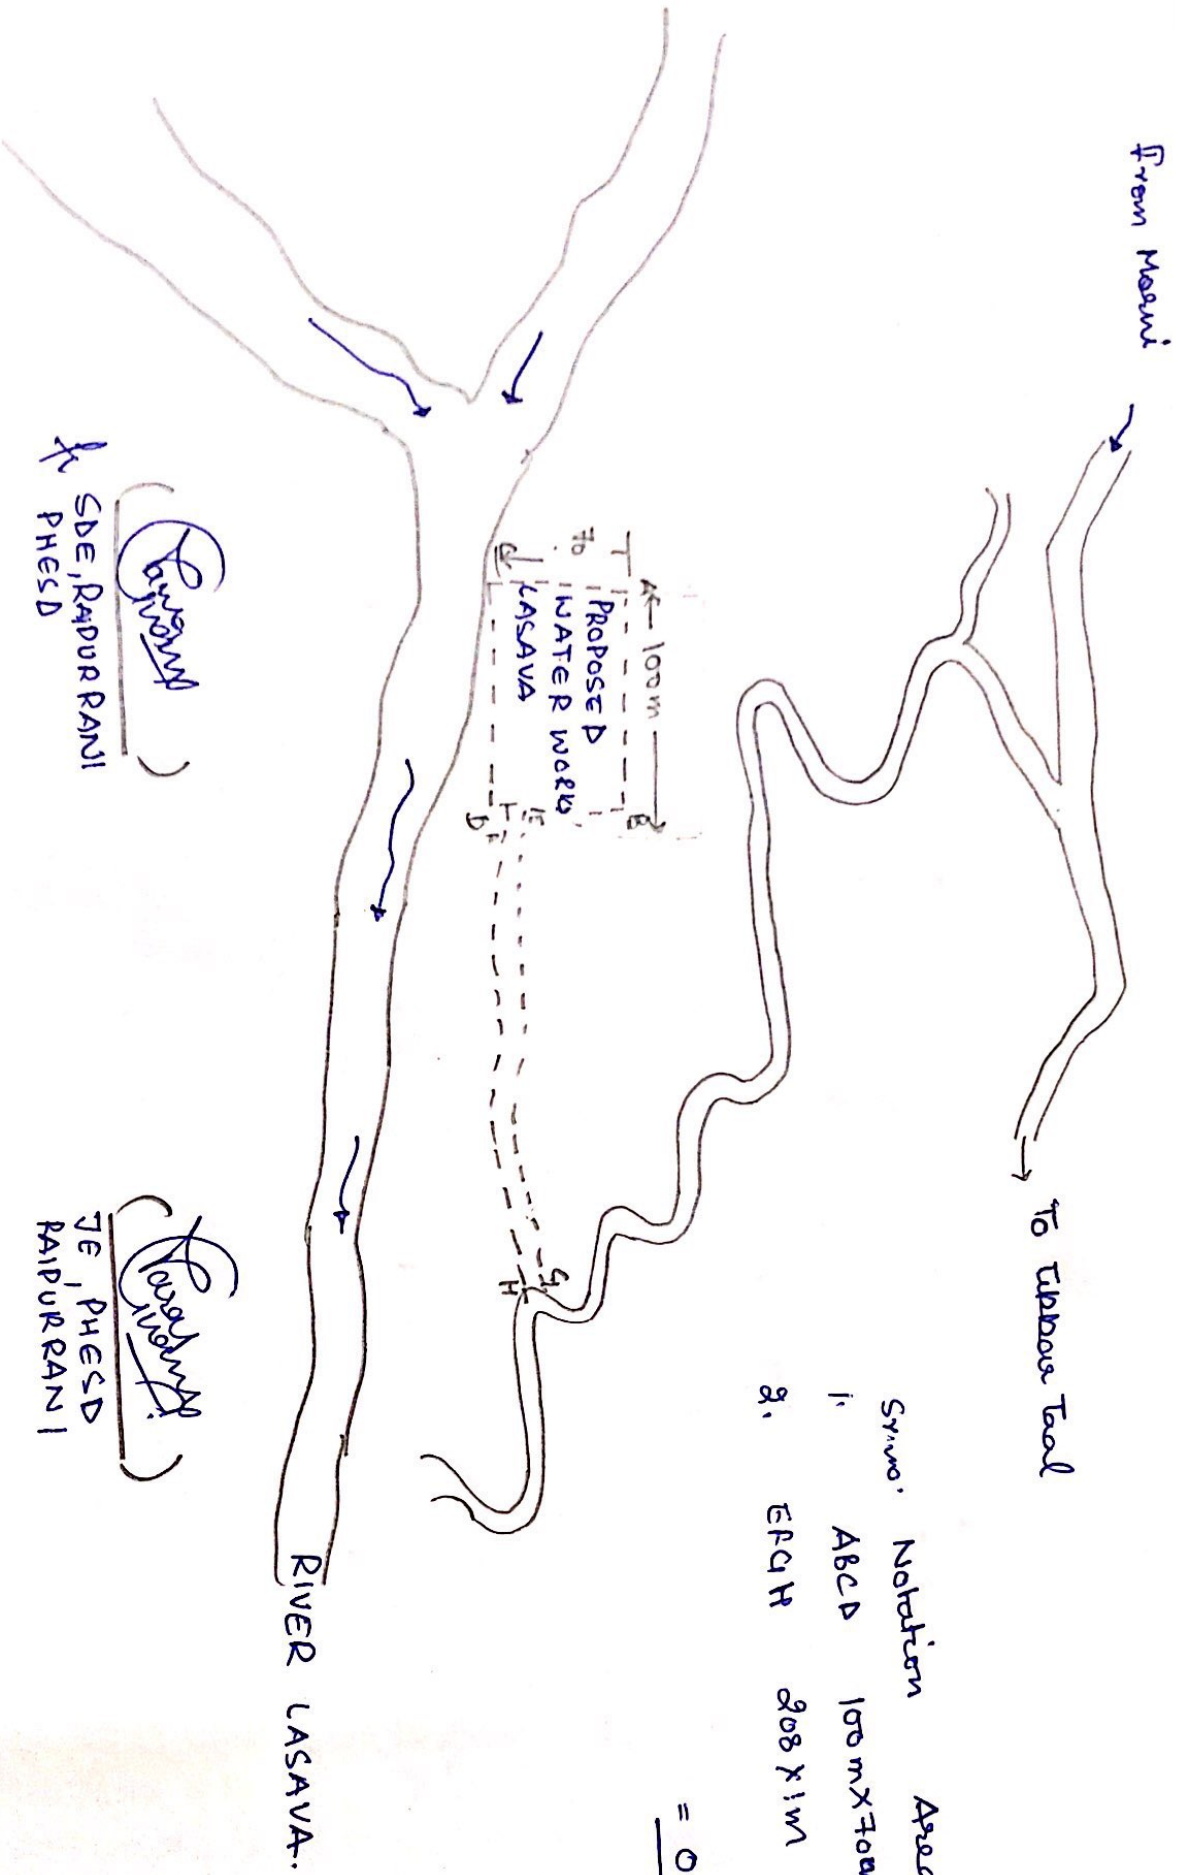 From Morni
To Tippar Taal
Sr. no. Notation Area
1. ABCD 100m X 70m
2. EFGH 208 X 1m
= 0
A ← 100m → B
70
PROPOSED
WATER WORKS
LASAVA
C
D
E
F
G
H
RIVER LASAVA.
SDE, RAIPURRANI
PHESD
JE, PHESD
RAIPURRANI